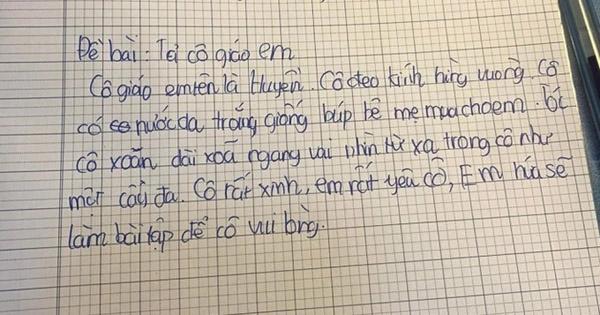 Đề bài: Tả cô giáo em
Cô giáo em tên là Huyền. Cô đeo kính hìng vuong. Cô
có nước da trắng giống búp bê mẹ mua cho em. tóc
cô xoăn dài xoã ngang vai nhìn từ xa trong cô như
một cây đa. Cô rất xinh, em rất yêu cô, Em hứa sẽ
làm bài tập để cô vui lòng.